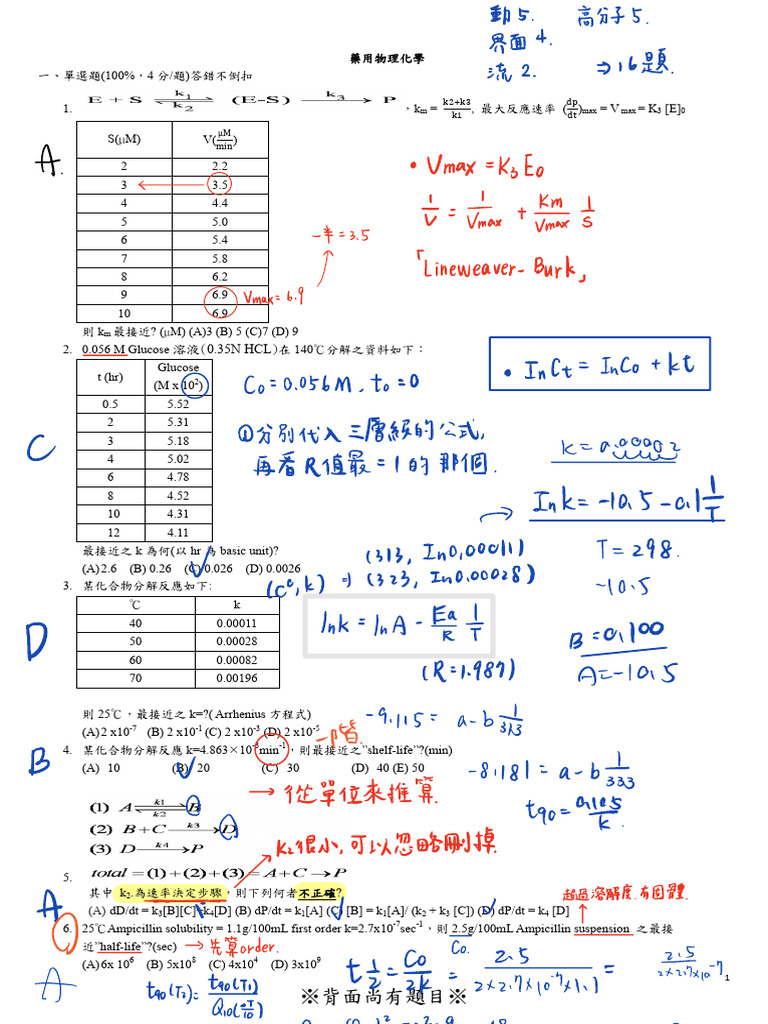 動5. 高分子5.
界面4.
流2. ⇒16題.
藥用物理化學
一、單選題(100%，4 分/題)答錯不倒扣
1. E + S ⇌ (E-S) → P k1 k2 k3 ，km = k2+k3/k1, 最大反應速率 (dp/dt)max = V max = K3 [E]0
A.
S(μM) V(μM/min)
2 2.2
3 3.5
4 4.4
5 5.0
6 5.4
7 5.8
8 6.2
9 6.9
10 6.9
• Vmax = K3 E0
1/V = 1/Vmax + Km/Vmax 1/S
「Lineweaver-Burk」
一半=3.5
Vmax=6.9
則 km 最接近? (μM) (A)3 (B) 5 (C)7 (D) 9
2. 0.056 M Glucose 溶液(0.35N HCL)在 140℃分解之資料如下：
C
t (hr) Glucose (M x 10²)
0.5 5.52
2 5.31
3 5.18
4 5.02
6 4.78
8 4.52
10 4.31
12 4.11
C0=0.056M, t0=0
• InCt = InC0 + kt
①分別代入三層級的公式,
再看R值最=1的那個.
k=0.00002
Ink = -10.5 -0.1 1/T
T=298.
-10.5
B=0.100
A=-10.5
最接近之 k 為何(以 hr 為 basic unit)?
(A)2.6 (B) 0.26 (C) 0.026 (D) 0.0026
3. 某化合物分解反應如下:
D
℃ k
40 0.00011
50 0.00028
60 0.00082
70 0.00196
(313, In0.00011)
(C°,k) ⇒ (323, In0.00028)
lnk = lnA - Ea/R 1/T
(R=1.987)
則 25℃，最接近之 k=?( Arrhenius 方程式)
(A)2 x10-7 (B) 2 x10-1 (C) 2 x10-3 (D) 2 x10-5
-9.115 = a-b 1/313
-8.181 = a-b 1/333
B
4. 某化合物分解反應 k=4.863×10-3min-1，則最接近之”shelf-life”?(min)
(A) 10 (B) 20 (C) 30 (D) 40 (E) 50
一階
→從單位來推算.
t90 = 0.105/k
(1) A ⇌ B k1 k2
(2) B + C → D k3
(3) D → P k4
5. total = (1) + (2) + (3) = A + C → P
k2很小,可以忽略刪掉
其中 k2 為速率決定步驟，則下列何者不正確?
A
(A) dD/dt = k3[B][C]-k4[D] (B) dP/dt = k1[A] (C) [B] = k1[A]/ (k2 + k3 [C]) (D) dP/dt = k4 [D]
超過溶解度.有固體.
6. 25℃ Ampicillin solubility = 1.1g/100mL first order k=2.7x10-7sec-1，則 2.5g/100mL Ampicillin suspension 之最接
近”half-life”?(sec)
→先算order.
C0.
(A)6x 10⁶ (B) 5x10⁸ (C) 4x10⁴ (D) 3x10⁹
A
t 1/2 = C0/2k = 2.5/2×2.7×10-7×1.1 = 2.5/2×2.7×10-7
t90(T2) = t90(T1)/Q10(ΔT/10)
※背面尚有題目※
1